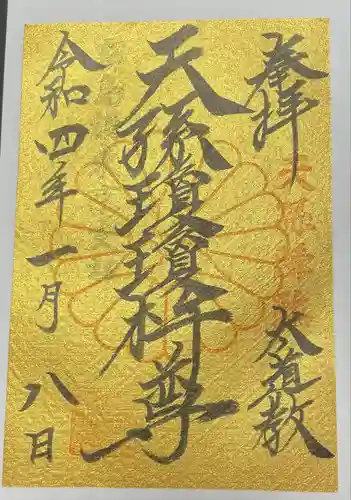 奉拝
大道教
天孫瓊瓊杵尊
令和四年一月八日